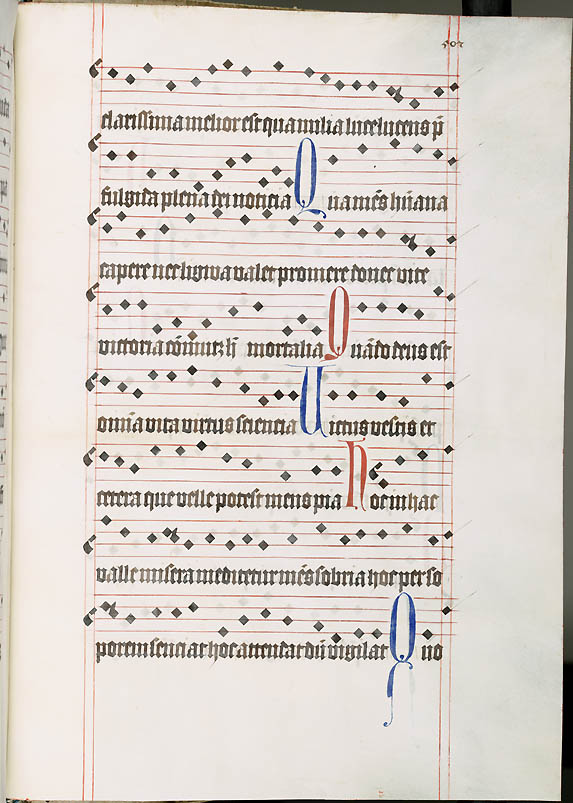 clarissima melior est quam milia luce lucens p̄
fulgida plena dei noticia Qua mēs hūana
capere nec ligwa valet promere donec vite
victoria cōmutꝫ h̄ mortalia Quādo deus est
omīa vita virtus sciencia Victus vestis et
cetera que velle potest mens pia Hoc in hac
valle misera meditetur mēs sobria hoc per so
porem senciat hoc attendat dū vigilat Quo